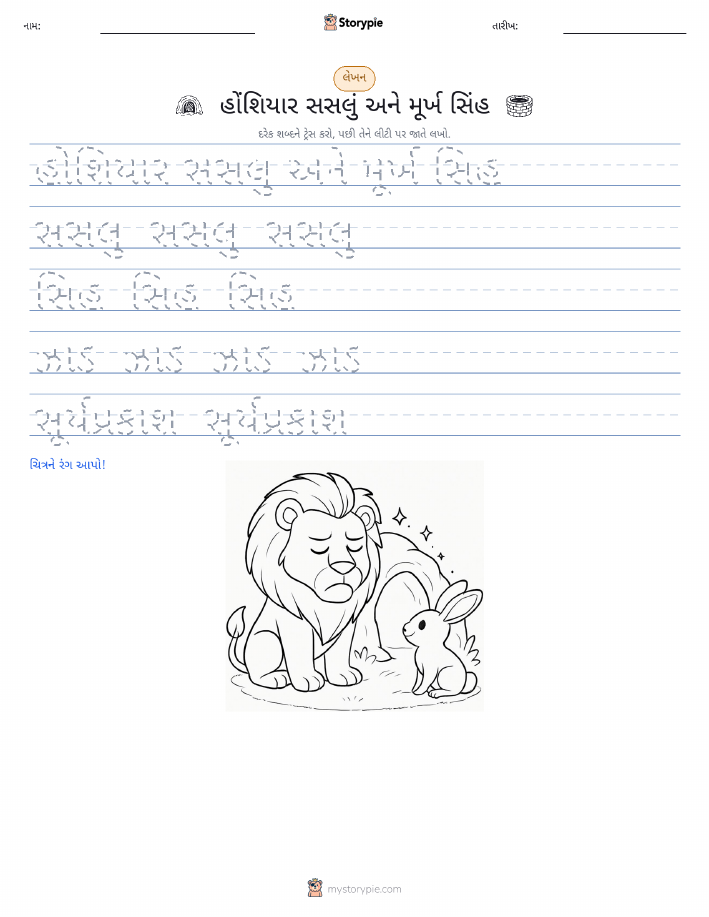 નામ:
Storypie
તારીખ:
લેખન
હોંશિયાર સસલું અને મૂર્ખ સિંહ
દરેક શબ્દને ટ્રેસ કરો, પછી તેને લીટી પર જાતે લખો.
હોંશિયાર સસલું અને મૂર્ખ સિંહ
સસલું સસલું સસલું
સિંહ સિંહ સિંહ
ઝાડ ઝાડ ઝાડ ઝાડ
સૂર્યપ્રકાશ સૂર્યપ્રકાશ
ચિત્રને રંગ આપો!
mystorypie.com